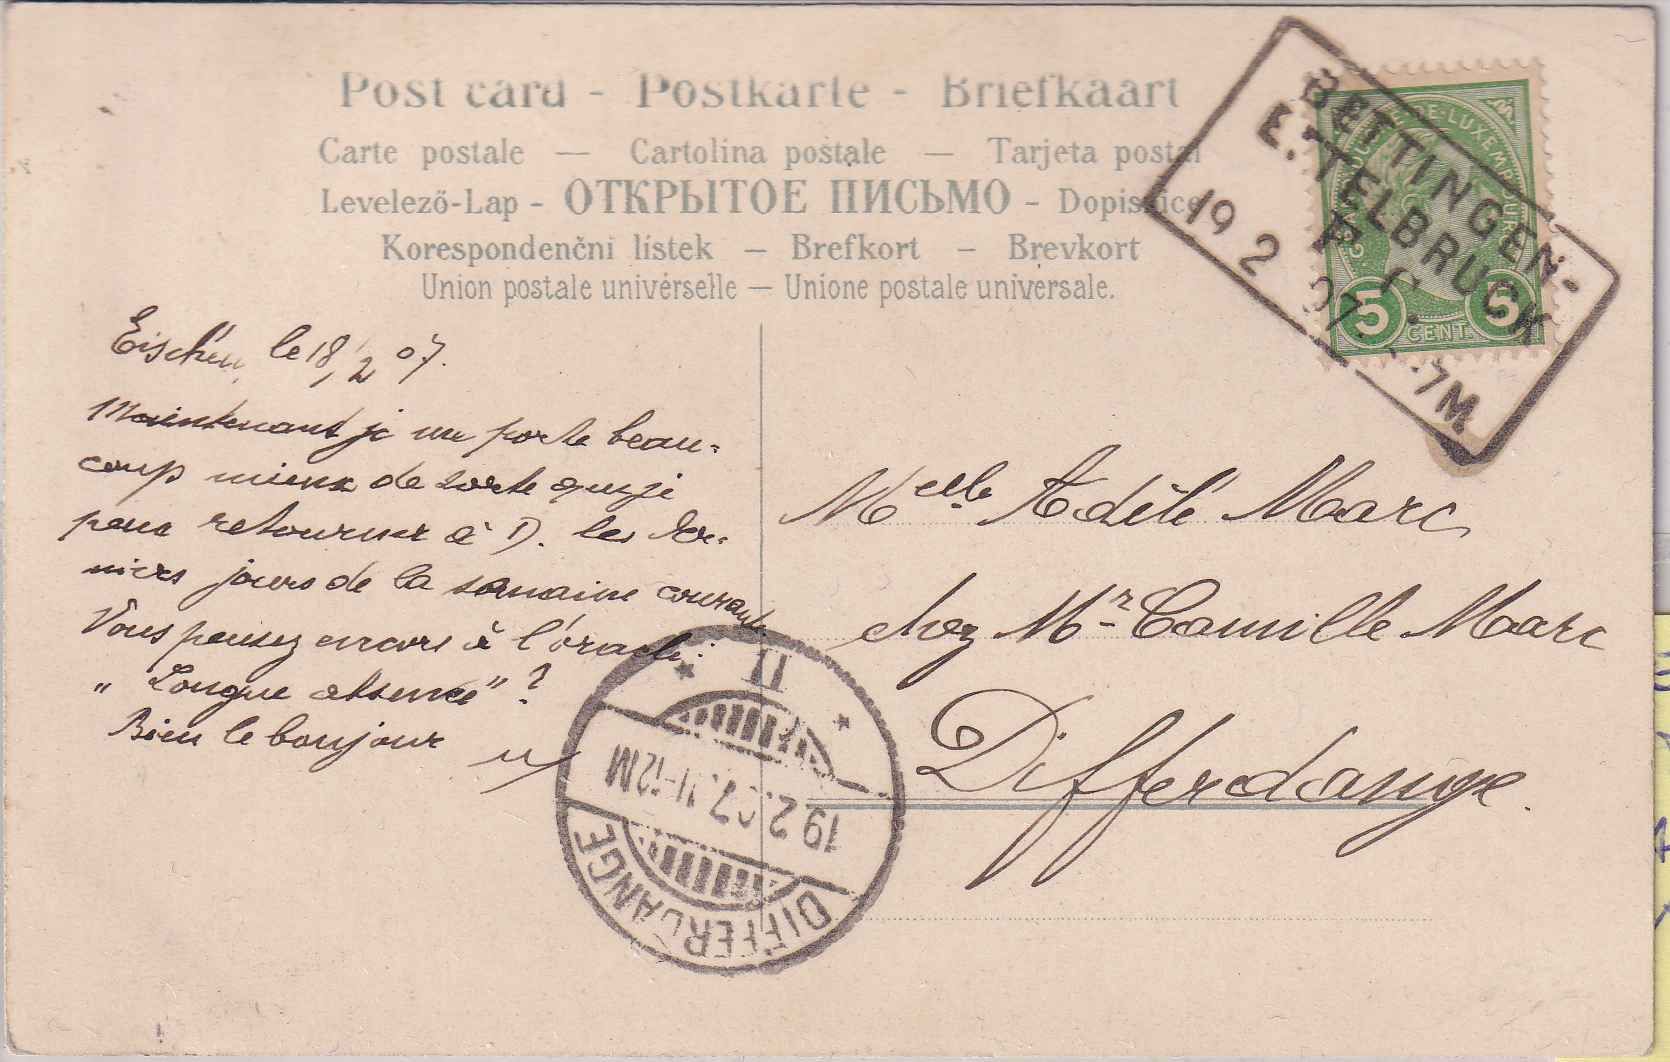 Post card - Postkarte - Briefkaart
Carte postale — Cartolina postale — Tarjeta postal
Levelező-Lap - ОТКРЫТОЕ ПИСЬМО - Dopisnice
Korespondenčni lístek — Brefkort — Brevkort
Union postale universelle — Unione postale universale.
BETTINGEN-
ETTELBRUCK
19 2 07 -7M
GRAND DUCHÉ DE LUXEMBOURG
5 CENT. 5
Eischen, le 18/2 07.
Maintenant je me porte beau-
coup mieux de sorte que je
peux retourner à D. les der-
niers jours de la semaine courante
Vous pensez encore à l'oracle:
"Longue absence"?
Bien le bonjour
Melle Adèle Marc
chez Mr Camille Marc
Differdange.
II
19.2.07.11-12M
DIFFERDANGE